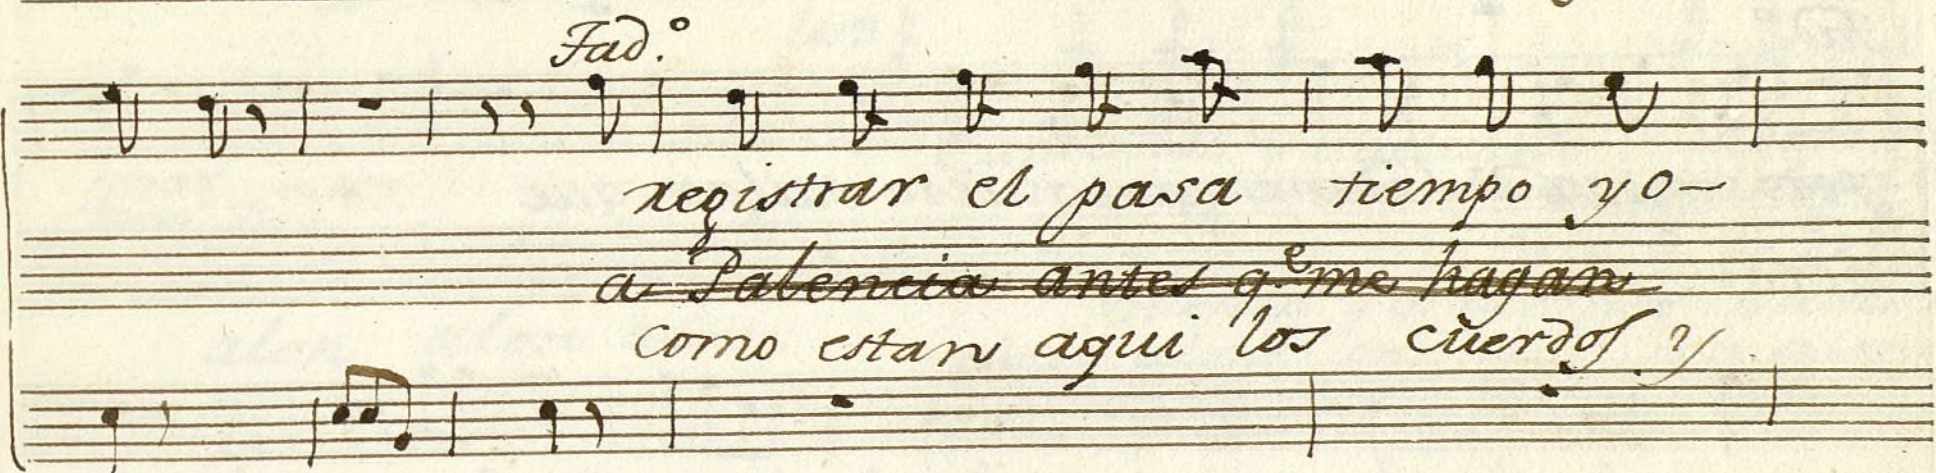 Tad.º
registrar el pasa tiempo yo-
a Palencia antes q.e me hagan
como estan aqui los cuerdos?